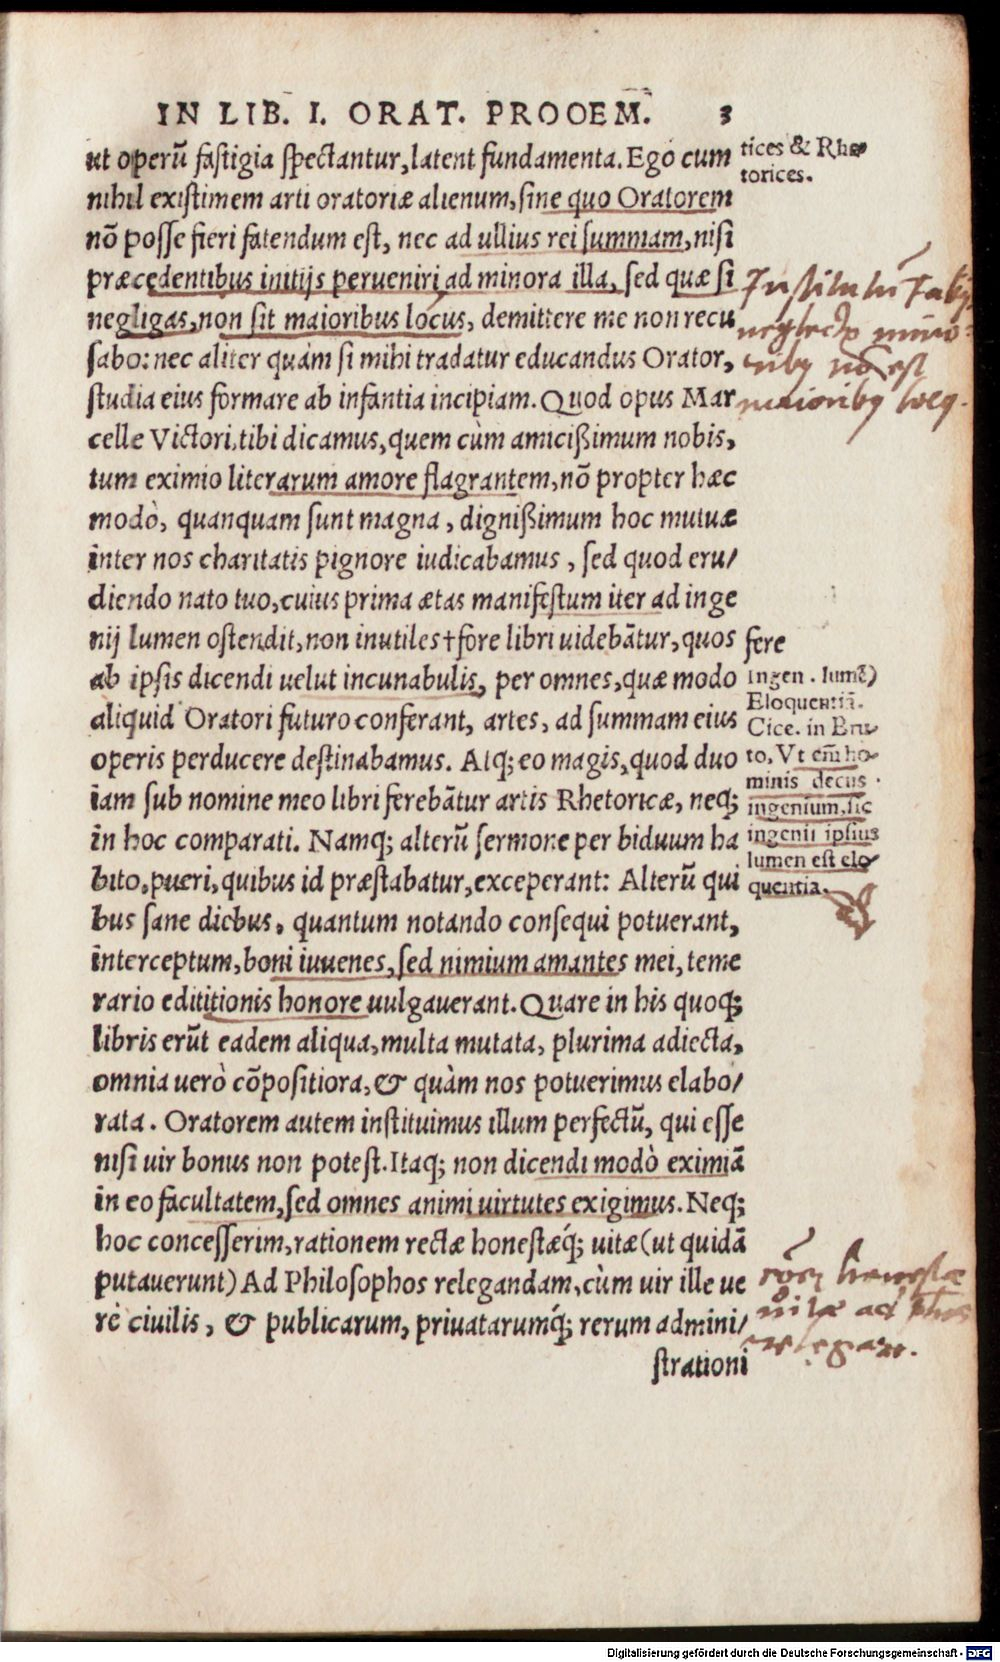 IN LIB. I. ORAT. PROOEM. 3
ut operū fastigia spectantur, latent fundamenta. Ego cum
nihil existimem arti oratoriæ alienum, sine quo Oratorem
nō posse fieri fatendum est, nec ad ullius rei summam, nisi
præcedentibus initijs perueniri, ad minora illa, sed quæ si
negligas, non sit maioribus locus, demittere me non recu
sabo: nec aliter quàm si mihi tradatur educandus Orator,
studia eius formare ab infantia incipiam. Quod opus Mar
celle Victori, tibi dicamus, quem cùm amicißimum nobis,
tum eximio literarum amore flagrantem, nō propter hæc
modò, quanquam sunt magna, dignißimum hoc mutuæ
inter nos charitatis pignore iudicabamus, sed quod eru/
diendo nato tuo, cuius prima ætas manifestum iter ad inge
nij lumen ostendit, non inutiles † fore libri uidebātur, quos
ab ipsis dicendi uelut incunabulis, per omnes, quæ modo
aliquid Oratori futuro conferant, artes, ad summam eius
operis perducere destinabamus. Atq; eo magis, quod duo
iam sub nomine meo libri ferebātur artis Rhetoricæ, neq;
in hoc comparati. Namq; alterū sermone per biduum ha
bito, pueri, quibus id præstabatur, exceperant: Alterū qui
bus sane diebus, quantum notando consequi potuerant,
interceptum, boni iuuenes, sed nimium amantes mei, teme
rario edititionis honore uulgauerant. Quare in his quoq;
libris erūt eadem aliqua, multa mutata, plurima adiecta,
omnia uerò cōpositiora, & quàm nos potuerimus elabo/
rata. Oratorem autem instituimus illum perfectū, qui esse
nisi uir bonus non potest. Itaq; non dicendi modò eximiā
in eo facultatem, sed omnes animi uirtutes exigimus. Neq;
hoc concesserim, rationem rectæ honestæq́; uitæ (ut quidā
putauerunt) Ad Philosophos relegandam, cùm uir ille ue
rè ciuilis, & publicarum, priuatarumq́; rerum admini/
strationi
tices & Rhe-
torices.
neglectis mino-
ribus nō est
maioribus locus.
fere
Ingen. lumē)
Eloquentiā.
Cice. in Bru-
to, Vt em̄ ho-
minis decus
ingenium, sic
ingenii ipsius
lumen est elo-
quentia.
honestæ
vitæ ad
relegare.
Digitalisierung gefördert durch die Deutsche Forschungsgemeinschaft - DFG